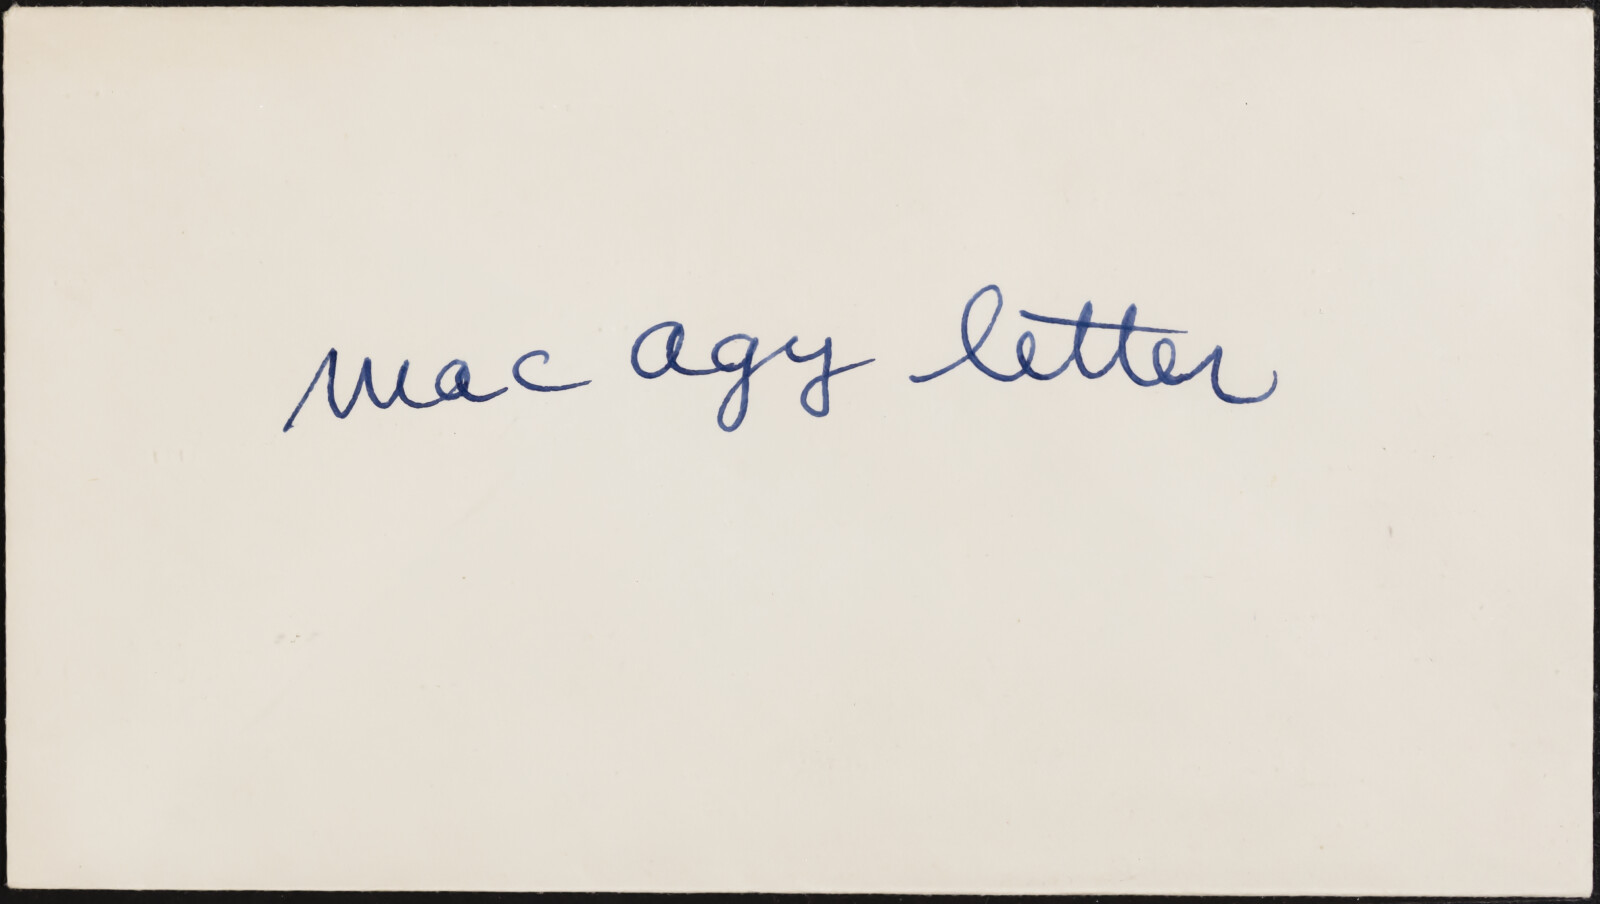 Mac Agy letter